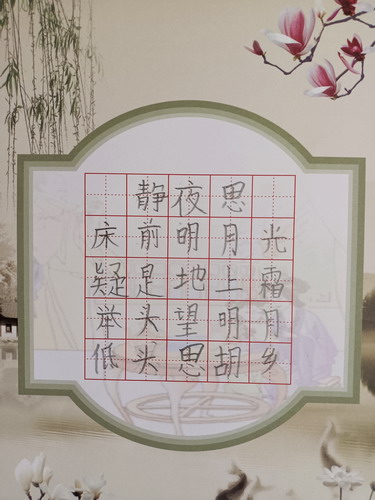 静夜思
床前明月光
疑是地上霜
举头望明月
低头思胡乡